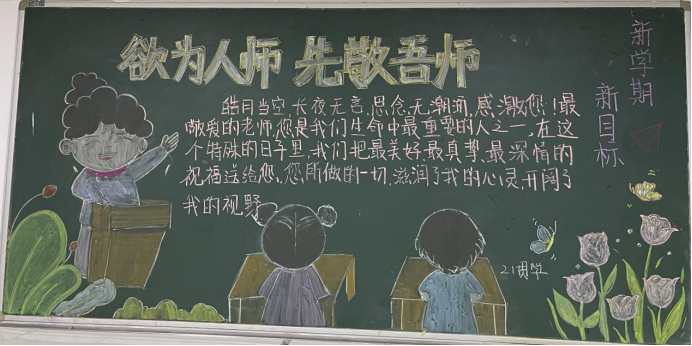 欲为人师 先敬吾师
皓月当空,长夜无言,思念,无潮汹,感激您!最
敬爱的老师,您是我们生命中最重要的人之一,在这
个特殊的日子里,我们把最美好,最真挚,最深情的
祝福送给您,您所做的一切,滋润了我的心灵,开阔了
我的视野
新学期
新目标